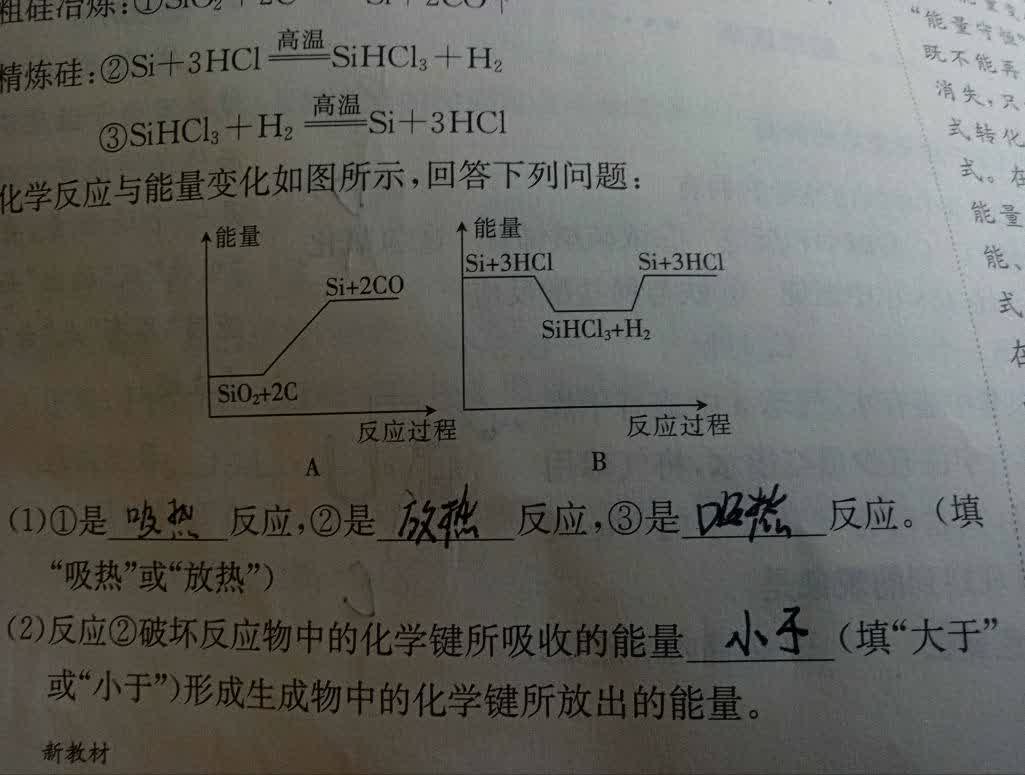 粗硅冶炼:①SiO₂+2C Si+2CO↑
精炼硅:②Si+3HCl 高温 SiHCl₃+H₂
③SiHCl₃+H₂ 高温 Si+3HCl
化学反应与能量变化如图所示,回答下列问题:
能量
Si+2CO
SiO₂+2C
反应过程
A
能量
Si+3HCl
Si+3HCl
SiHCl₃+H₂
反应过程
B
(1)①是 吸热 反应,②是 放热 反应,③是 吸热 反应。(填
“吸热”或“放热”)
(2)反应②破坏反应物中的化学键所吸收的能量 小于 (填“大于”
或“小于”)形成生成物中的化学键所放出的能量。
新教材
“能量守恒”
既不能再
消失,只
式转化
式。在
能量
能、
式
在